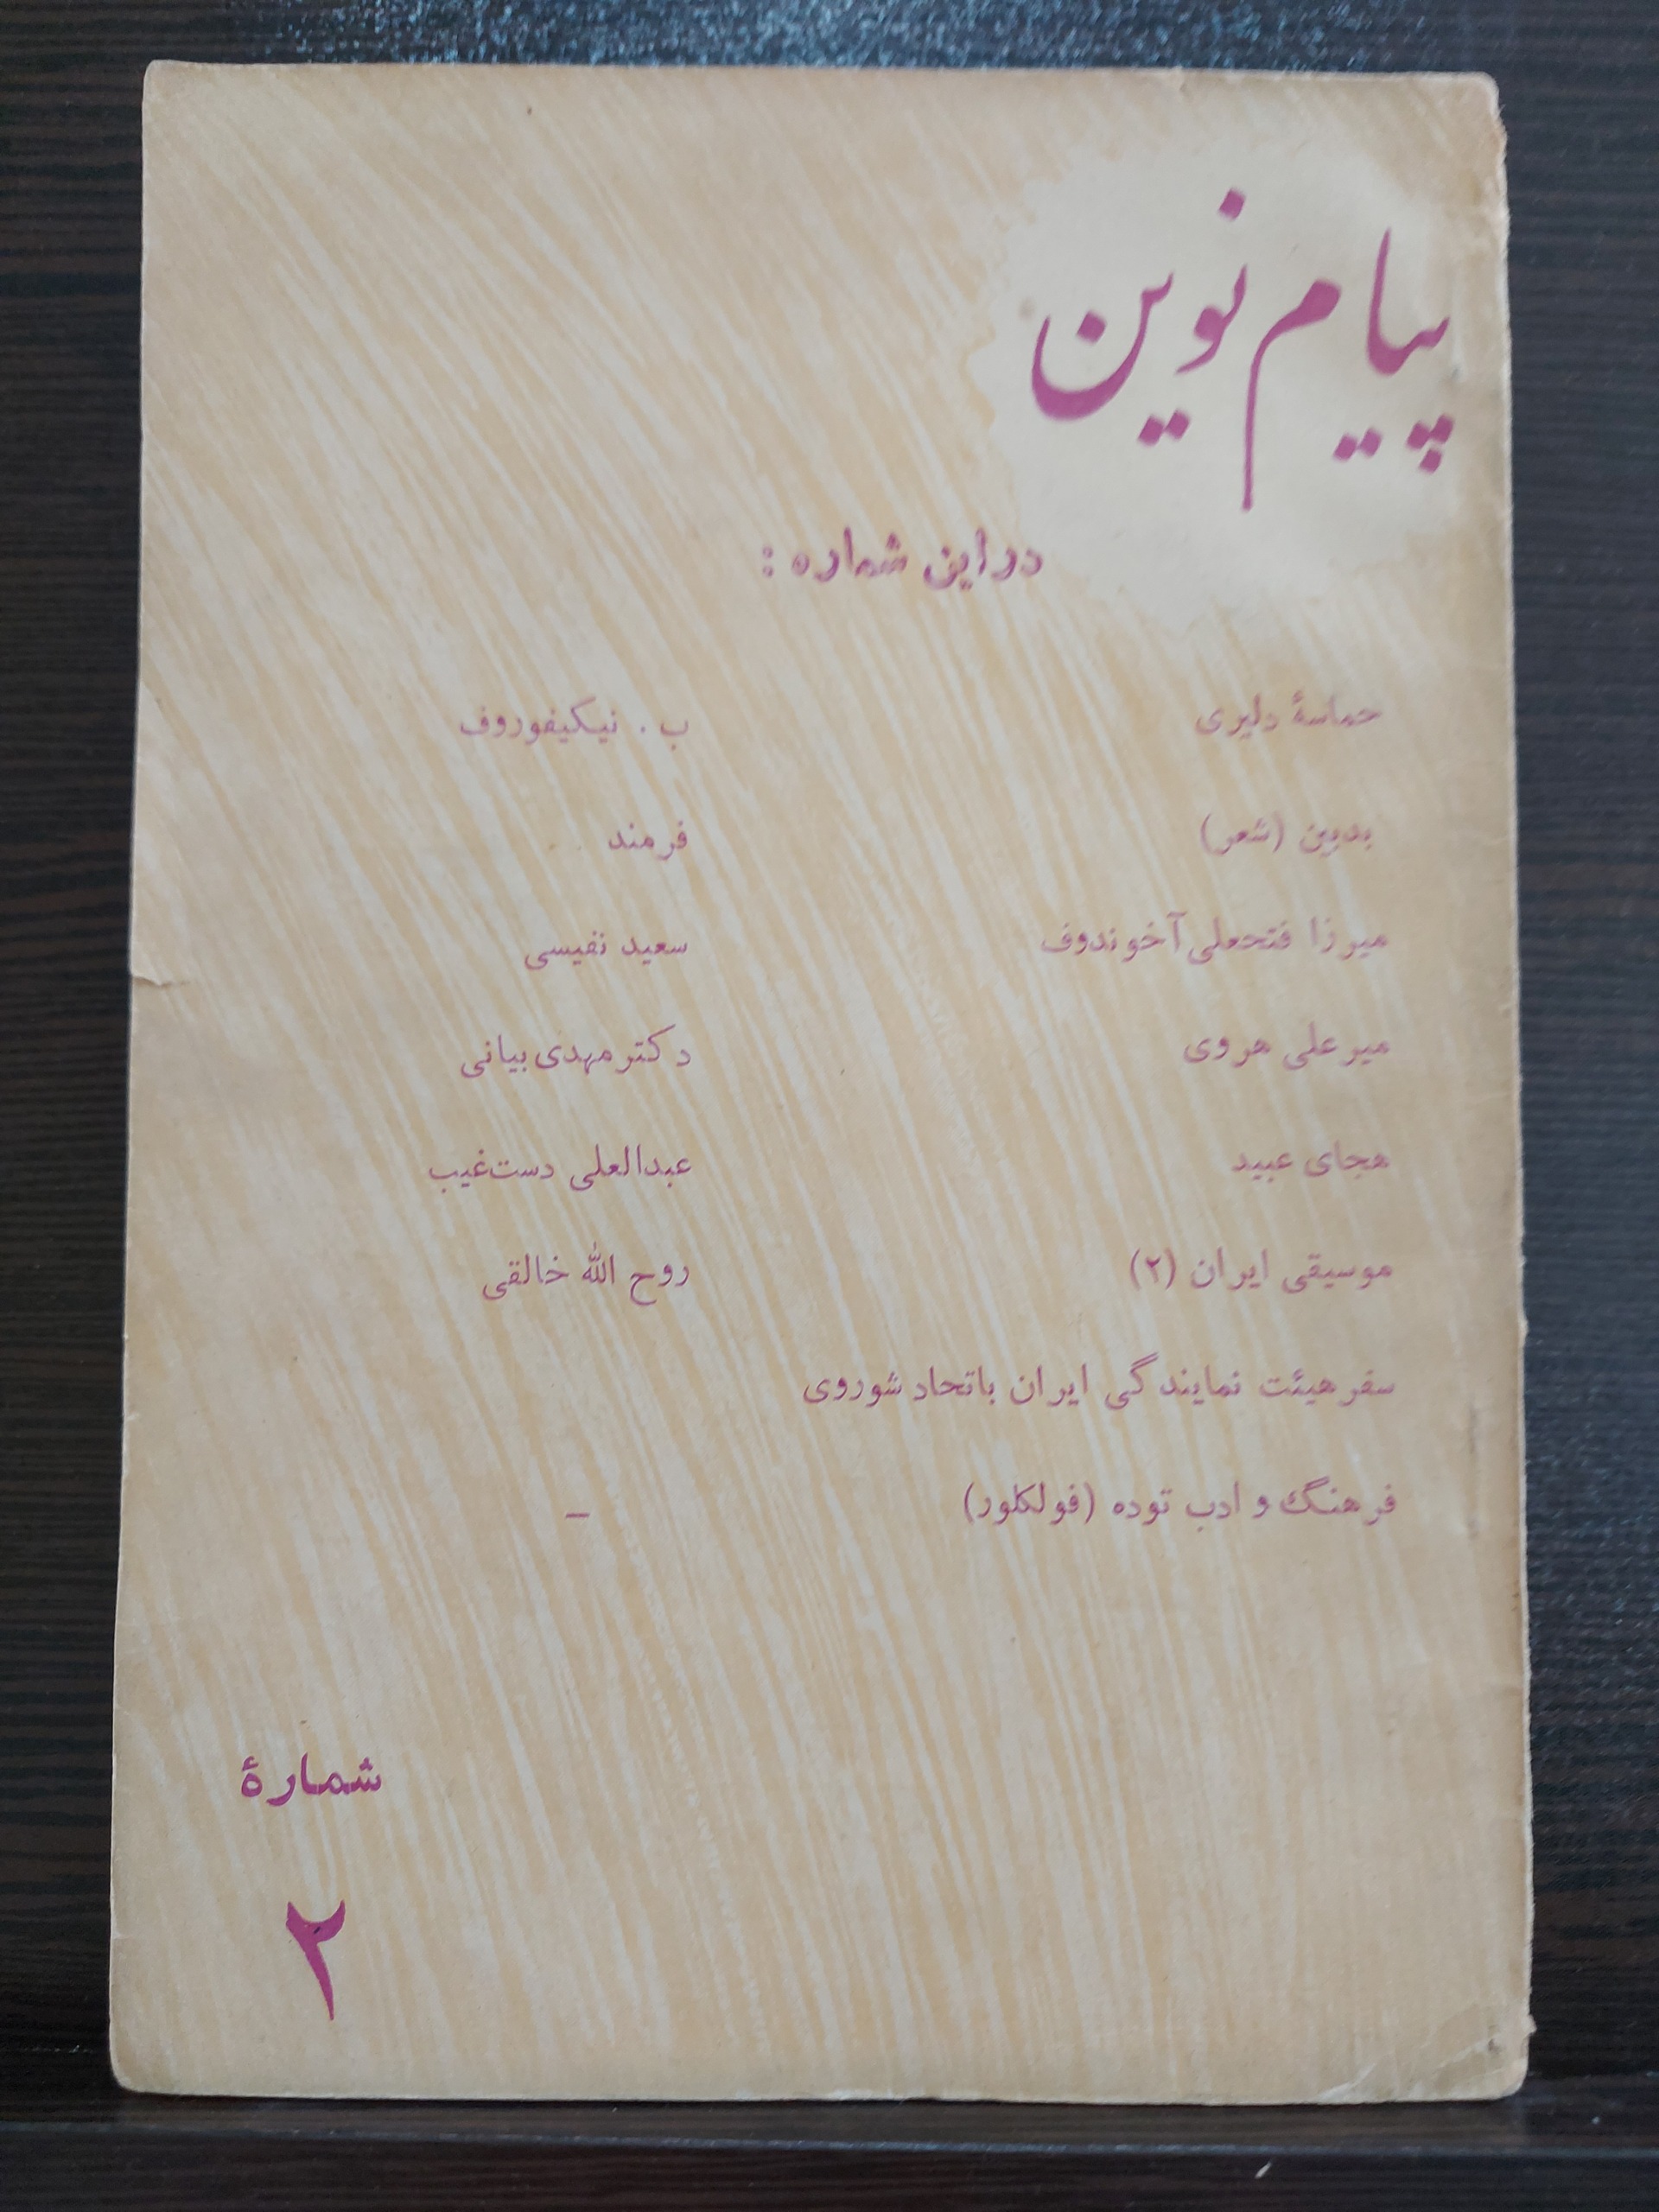 پیام نوین
در این شماره :
حماسهٔ دلیری ب . نیکیفوروف
بدبین (شعر) فرمند
میرزا فتحعلی آخوندوف سعید نفیسی
میر علی هروی دکتر مهدی بیانی
هجای عبید عبدالعلی دست‌غیب
موسیقی ایران (۲) روح الله خالقی
سفر هیئت نمایندگی ایران باتحاد شوروی
فرهنگ و ادب توده (فولکلور) –
شمارهٔ
۲